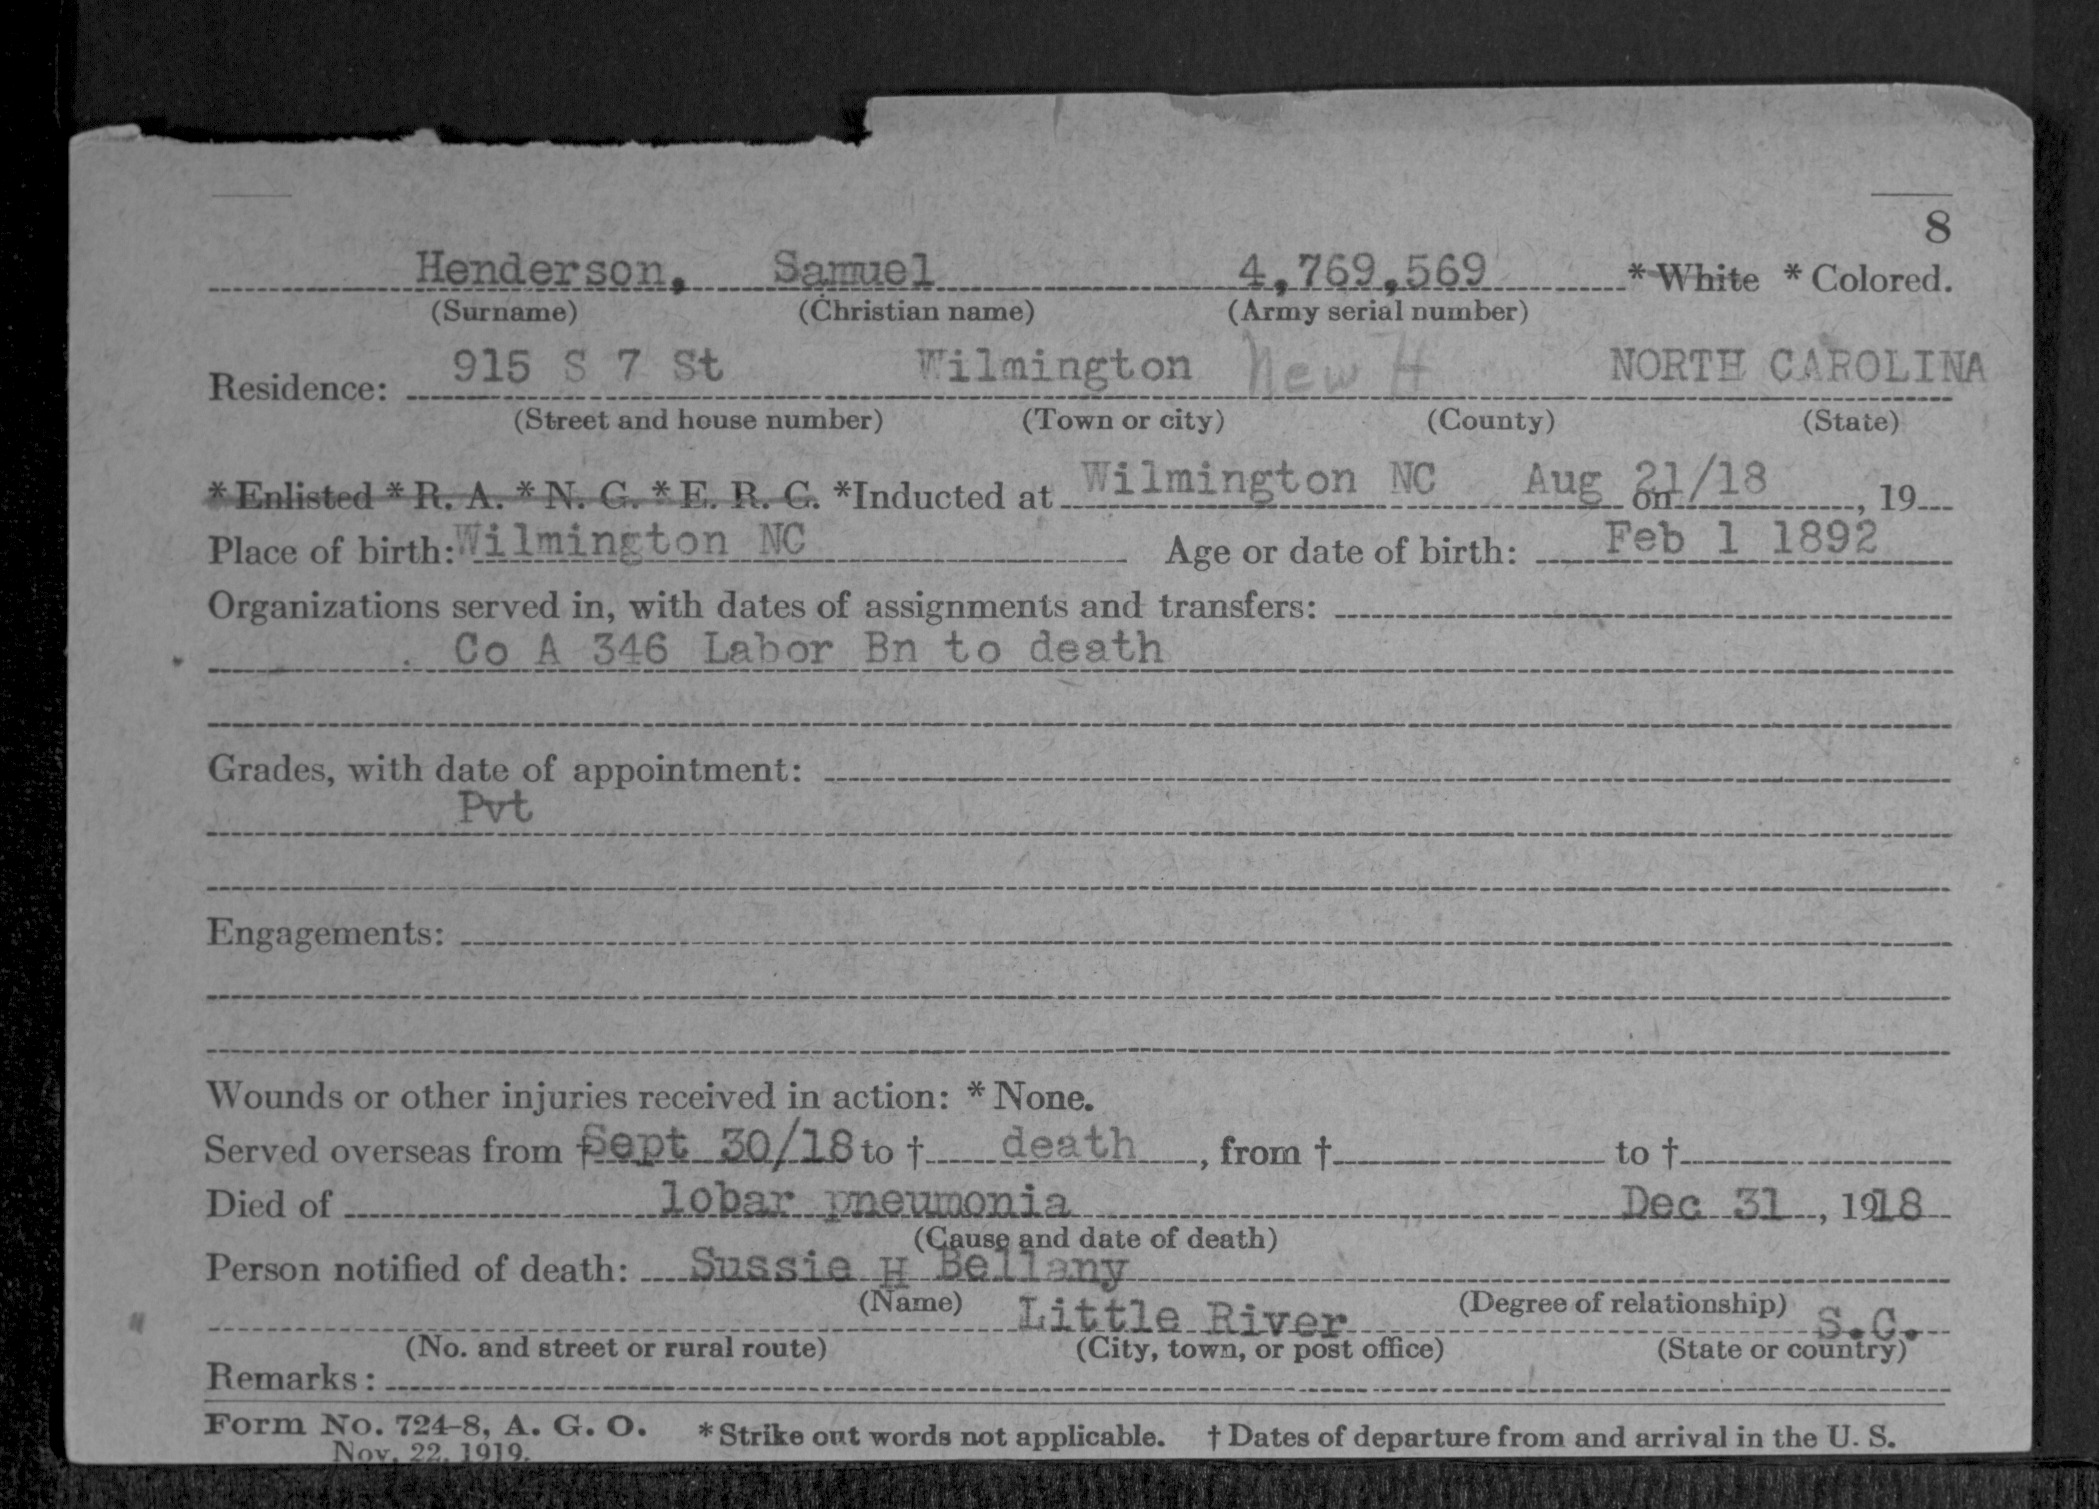 8
Henderson, Samuel 4,769,569 * White * Colored.
(Surname) (Christian name) (Army serial number)
Residence: 915 S 7 St Wilmington New H NORTH CAROLINA
(Street and house number) (Town or city) (County) (State)
* Enlisted * R. A. * N. G. * E. R. C. *Inducted at Wilmington NC Aug on 21/18, 19
Place of birth: Wilmington NC Age or date of birth: Feb 1 1892
Organizations served in, with dates of assignments and transfers:
Co A 346 Labor Bn to death
Grades, with date of appointment:
Pvt
Engagements:
Wounds or other injuries received in action: * None.
Served overseas from † Sept 30/18 to † death, from † to †
Died of lobar pneumonia Dec 31, 1918
(Cause and date of death)
Person notified of death: Sussie H Bellany
(Name) (Degree of relationship)
Little River S.C.
(No. and street or rural route) (City, town, or post office) (State or country)
Remarks:
Form No. 724-8, A. G. O. * Strike out words not applicable. † Dates of departure from and arrival in the U. S.
Nov. 22, 1919.